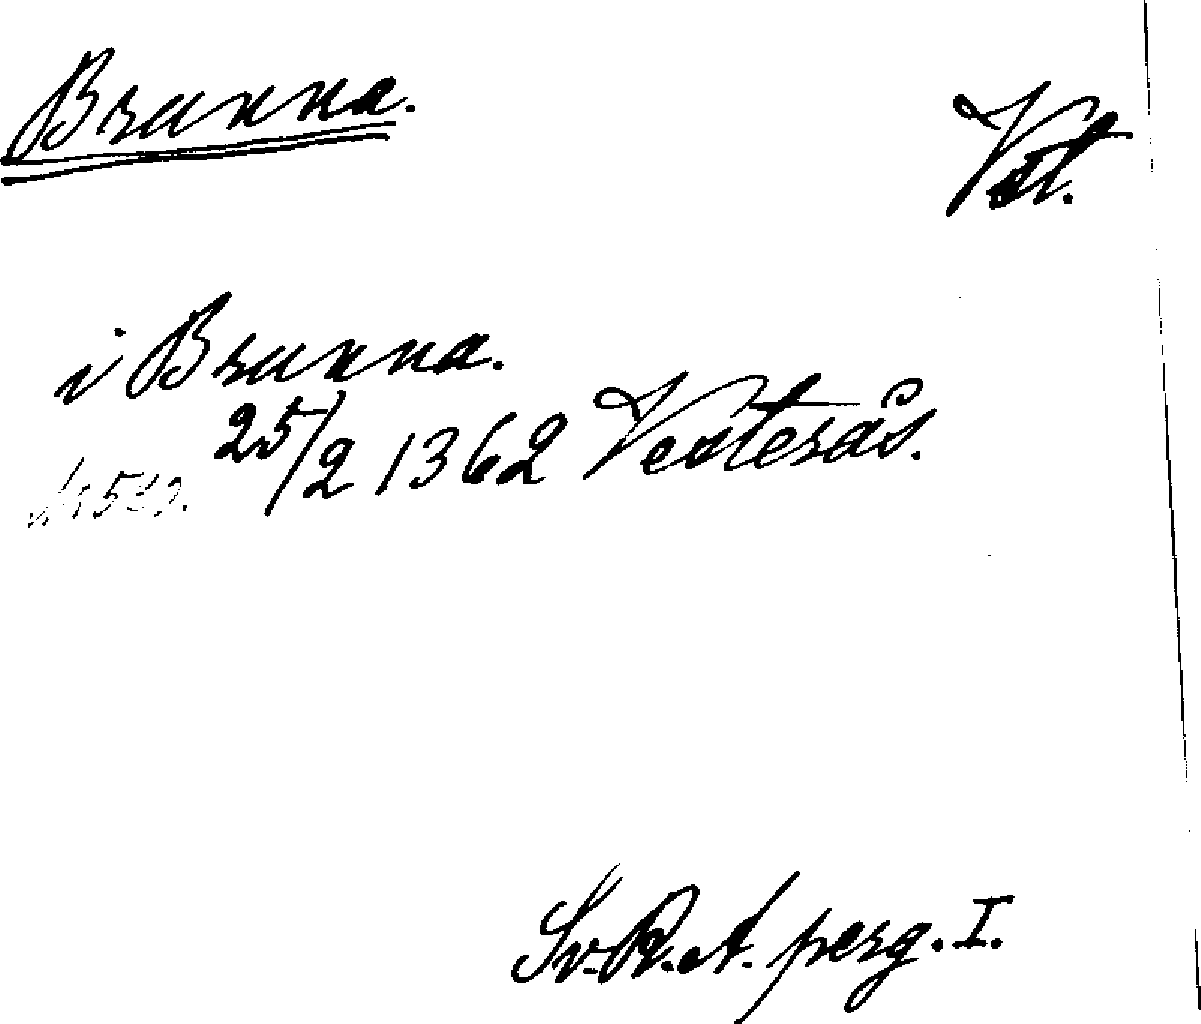 Brunna.
Vstl.
i Brunna.
25/2 1362 Vesterås.
Sv. R. A. perg. I.